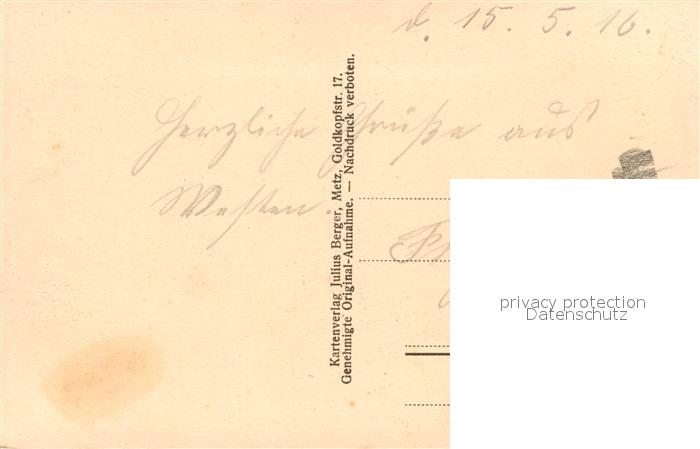 d. 15. 5. 16.
Herzliche Grüße aus
Westen.
Kartenverlag Julius Berger, Metz, Goldkopfstr. 17.
Genehmigte Original-Aufnahme. — Nachdruck verboten.
privacy protection
Datenschutz